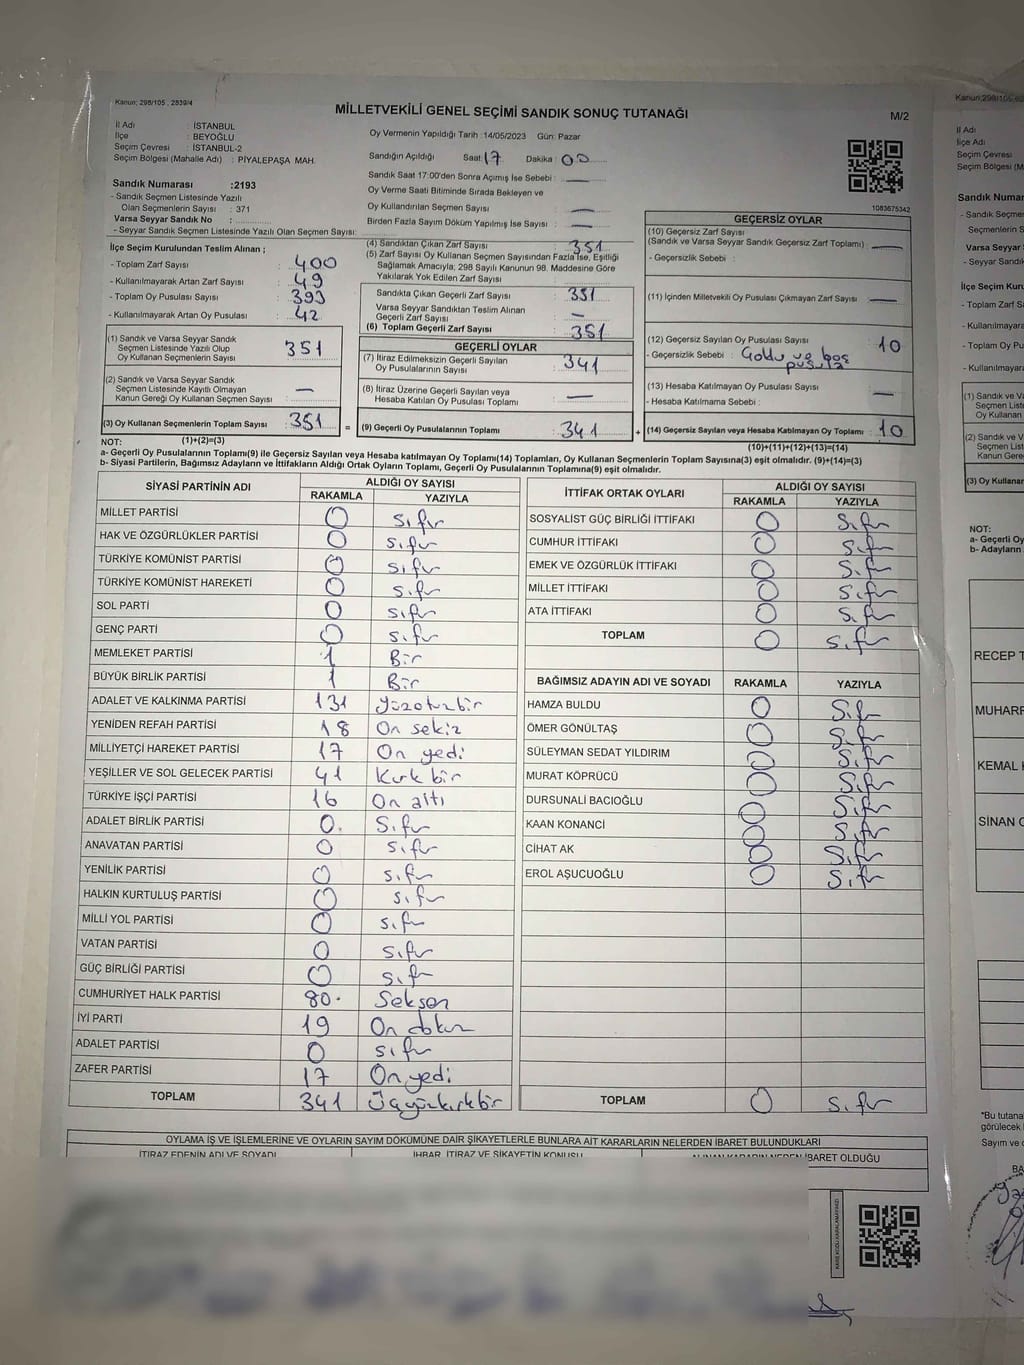 Kanun; 298/105 , 2839/4
MİLLETVEKİLİ GENEL SEÇİMİ SANDIK SONUÇ TUTANAĞI
M/2
İl Adı : İSTANBUL
İlçe : BEYOĞLU
Seçim Çevresi : İSTANBUL-2
Seçim Bölgesi (Mahalle Adı) : PİYALEPAŞA MAH.
Sandık Numarası :2193
- Sandık Seçmen Listesinde Yazılı
Olan Seçmenlerin Sayısı : 371
Varsa Seyyar Sandık No :
- Seyyar Sandık Seçmen Listesinde Yazılı Olan Seçmen Sayısı:
Oy Vermenin Yapıldığı Tarih :14/05/2023 Gün: Pazar
Sandığın Açıldığı Saat: 17 Dakika : 00
Sandık Saat 17:00'den Sonra Açımış İse Sebebi : —
Oy Verme Saati Bitiminde Sırada Bekleyen ve
Oy Kullandırılan Seçmen Sayısı : —
Birden Fazla Sayım Döküm Yapılmış İse Sayısı : —
1083675342
İlçe Seçim Kurulundan Teslim Alınan ;
- Toplam Zarf Sayısı : 400
- Kullanılmayarak Artan Zarf Sayısı : 49
- Toplam Oy Pusulası Sayısı : 393
- Kullanılmayarak Artan Oy Pusulası : 42
(1) Sandık ve Varsa Seyyar Sandık
Seçmen Listesinde Yazılı Olup
Oy Kullanan Seçmenlerin Sayısı : 351
(2) Sandık ve Varsa Seyyar Sandık
Seçmen Listesinde Kayıtlı Olmayan
Kanun Gereği Oy Kullanan Seçmen Sayısı : —
(3) Oy Kullanan Seçmenlerin Toplam Sayısı : 351
(1)+(2)=(3)
(4) Sandıktan Çıkan Zarf Sayısı : 351
(5) Zarf Sayısı Oy Kullanan Seçmen Sayısından Fazla İse, Eşitliği
Sağlamak Amacıyla; 298 Sayılı Kanunun 98. Maddesine Göre
Yakılarak Yok Edilen Zarf Sayısı :
Sandıkta Çıkan Geçerli Zarf Sayısı : 351
Varsa Seyyar Sandıktan Teslim Alınan
Geçerli Zarf Sayısı : —
(6) Toplam Geçerli Zarf Sayısı : 351
GEÇERLİ OYLAR
(7) İtiraz Edilmeksizin Geçerli Sayılan
Oy Pusulalarının Sayısı : 341
(8) İtiraz Üzerine Geçerli Sayılan veya
Hesaba Katılan Oy Pusulası Toplamı : —
= (9) Geçerli Oy Pusulalarının Toplamı : 341
GEÇERSİZ OYLAR
(10) Geçersiz Zarf Sayısı
(Sandık ve Varsa Seyyar Sandık Geçersiz Zarf Toplamı) : —
- Geçersizlik Sebebi :
(11) İçinden Milletvekili Oy Pusulası Çıkmayan Zarf Sayısı : —
(12) Geçersiz Sayılan Oy Pusulası Sayısı : 10
- Geçersizlik Sebebi : ve boş
pusula
(13) Hesaba Katılmayan Oy Pusulası Sayısı : —
- Hesaba Katılmama Sebebi :
+ (14) Geçersiz Sayılan veya Hesaba Katılmayan Oy Toplamı : 10
(10)+(11)+(12)+(13)=(14)
NOT:
a- Geçerli Oy Pusulalarının Toplamı(9) ile Geçersiz Sayılan veya Hesaba katılmayan Oy Toplamı(14) Toplamları, Oy Kullanan Seçmenlerin Toplam Sayısına(3) eşit olmalıdır. (9)+(14)=(3)
b- Siyasi Partilerin, Bağımsız Adayların ve İttifakların Aldığı Ortak Oyların Toplamı, Geçerli Oy Pusulalarının Toplamına(9) eşit olmalıdır.
SİYASİ PARTİNİN ADI ALDIĞI OY SAYISI
RAKAMLA YAZIYLA
MİLLET PARTİSİ 0 sıfır
HAK VE ÖZGÜRLÜKLER PARTİSİ 0 sıfır
TÜRKİYE KOMÜNİST PARTİSİ 0 sıfır
TÜRKİYE KOMÜNİST HAREKETİ 0 sıfır
SOL PARTİ 0 sıfır
GENÇ PARTİ 0 sıfır
MEMLEKET PARTİSİ 1 Bir
BÜYÜK BİRLİK PARTİSİ 1 Bir
ADALET VE KALKINMA PARTİSİ 131 yüzotuzbir
YENİDEN REFAH PARTİSİ 18 On sekiz
MİLLİYETÇİ HAREKET PARTİSİ 17 On yedi
YEŞİLLER VE SOL GELECEK PARTİSİ 41 Kırk bir
TÜRKİYE İŞÇİ PARTİSİ 16 On altı
ADALET BİRLİK PARTİSİ 0. Sıfır
ANAVATAN PARTİSİ 0 sıfır
YENİLİK PARTİSİ 0 sıfır
HALKIN KURTULUŞ PARTİSİ 0 sıfır
MİLLİ YOL PARTİSİ 0 sıfır
VATAN PARTİSİ 0 sıfır
GÜÇ BİRLİĞİ PARTİSİ 0 sıfır
CUMHURİYET HALK PARTİSİ 80. Seksen
İYİ PARTİ 19 On dokuz
ADALET PARTİSİ 0 sıfır
ZAFER PARTİSİ 17 On yedi
TOPLAM 341 Üçyüzkırkbir
İTTİFAK ORTAK OYLARI ALDIĞI OY SAYISI
RAKAMLA YAZIYLA
SOSYALİST GÜÇ BİRLİĞİ İTTİFAKI 0 Sıfır
CUMHUR İTTİFAKI 0 Sıfır
EMEK VE ÖZGÜRLÜK İTTİFAKI 0 Sıfır
MİLLET İTTİFAKI 0 Sıfır
ATA İTTİFAKI 0 Sıfır
TOPLAM 0 sıfır
BAĞIMSIZ ADAYIN ADI VE SOYADI RAKAMLA YAZIYLA
HAMZA BULDU 0 Sıfır
ÖMER GÖNÜLTAŞ 0 Sıfır
SÜLEYMAN SEDAT YILDIRIM 0 Sıfır
MURAT KÖPRÜCÜ 0 Sıfır
DURSUNALİ BACIOĞLU 0 Sıfır
KAAN KONANCİ 0 Sıfır
CİHAT AK 0 Sıfır
EROL AŞUCUOĞLU 0 Sıfır
TOPLAM 0 sıfır
OYLAMA İŞ VE İŞLEMLERİNE VE OYLARIN SAYIM DÖKÜMÜNE DAİR ŞİKAYETLERLE BUNLARA AİT KARARLARIN NELERDEN İBARET BULUNDUKLARI
İTİRAZ EDENİN ADI VE SOYADI İHBAR, İTİRAZ VE ŞİKAYETİN KONUSU ALINAN KARARIN NEDEN İBARET OLDUĞU
KARE KODU KARALAMAYINIZ!
Kanun;298/105
İl Adı
İlçe Adı
Seçim Çevresi
Seçim Bölgesi (M
Sandık Numar
- Sandık Seçme
Seçmenlerin S
Varsa Seyyar
- Seyyar Sandık
İlçe Seçim Kuru
- Toplam Zarf S
- Kullanılmayara
- Toplam Oy Pu
- Kullanılmayara
(1) Sandık ve Va
Seçmen Liste
Oy Kullanan
(2) Sandık ve Va
Seçmen List
Kanun Gere
(3) Oy Kullanar
NOT:
a- Geçerli Oy
b- Adayların
RECEP T
MUHARR
KEMAL K
SİNAN O
*Bu tutana
görülecek
Sayım ve
BA